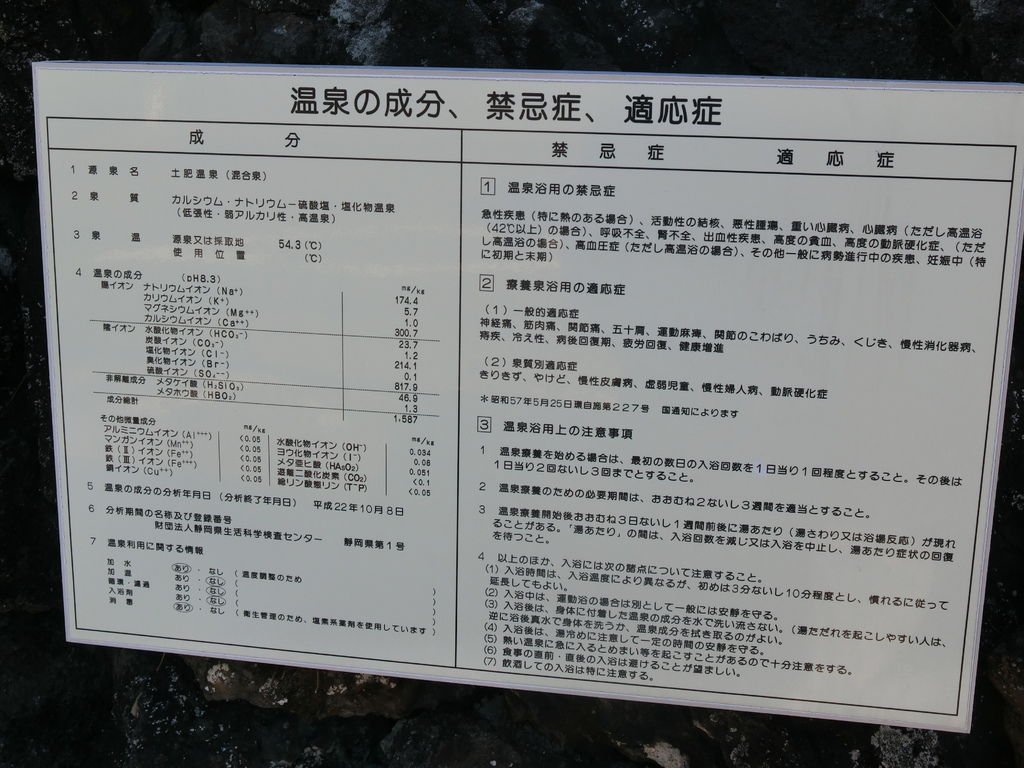 温泉の成分、禁忌症、適応症
成 分
1 源 泉 名 土肥温泉（混合泉）
2 泉 質 カルシウム・ナトリウム－硫酸塩・塩化物温泉
（低張性・弱アルカリ性・高温泉）
3 泉 温 源泉又は採取地 54.3（℃）
使 用 位 置 （℃）
4 温泉の成分 （pH8.3） mg/kg
陽イオン ナトリウムイオン（Na⁺） 174.4
カリウムイオン（K⁺） 5.7
マグネシウムイオン（Mg⁺⁺） 1.0
カルシウムイオン（Ca⁺⁺） 300.7
陰イオン 水酸化物イオン（HCO₃⁻） 23.7
炭酸イオン（CO₃⁻） 1.2
塩化物イオン（Cl⁻） 214.1
臭化物イオン（Br⁻） 0.1
硫酸イオン（SO₄⁻⁻） 817.9
非解離成分 メタケイ酸（H₂SiO₃） 46.9
メタホウ酸（HBO₂） 1.3
成分総計 1,587
その他微量成分 mg/kg mg/kg
アルミニウムイオン（Al⁺⁺⁺） <0.05 水酸化物イオン（OH⁻） 0.034
マンガンイオン（Mn⁺⁺） <0.05 ヨウ化物イオン（I⁻） 0.08
鉄（Ⅱ）イオン（Fe⁺⁺） <0.05 メタ亜ヒ酸（HAsO₂） 0.051
鉄（Ⅲ）イオン（Fe⁺⁺⁺） <0.05 遊離二酸化炭素（CO₂） <0.1
銅イオン（Cu⁺⁺） <0.05 総リン酸態リン（T⁻P） <0.05
5 温泉の成分の分析年月日（分析終了年月日） 平成22年10月8日
6 分析期間の名称及び登録番号
財団法人静岡県生活科学検査センター 静岡県第1号
7 温泉利用に関する情報
加 水 あり ・ なし （ 温度調整のため ）
加 温 あり ・ なし （ ）
循環・濾過 あり ・ なし （ ）
入浴剤 あり ・ なし （ ）
消 毒 あり ・ なし （ 衛生管理のため、塩素系薬剤を使用しています ）
禁 忌 症 適 応 症
1 温泉浴用の禁忌症
急性疾患（特に熱のある場合）、活動性の結核、悪性腫瘍、重い心臓病、心臓病（ただし高温浴
（42℃以上）の場合）、呼吸不全、腎不全、出血性疾患、高度の貧血、高度の動脈硬化症、（ただ
し高温浴の場合）、高血圧症（ただし高温浴の場合）、その他一般に病勢進行中の疾患、妊娠中（特
に初期と末期）
2 療養泉浴用の適応症
（1）一般的適応症
神経痛、筋肉痛、関節痛、五十肩、運動麻痺、関節のこわばり、うちみ、くじき、慢性消化器病、
痔疾、冷え性、病後回復期、疲労回復、健康増進
（2）泉質別適応症
きりきず、やけど、慢性皮膚病、虚弱児童、慢性婦人病、動脈硬化症
＊昭和57年5月25日環自施第227号 国通知によります
3 温泉浴用上の注意事項
1 温泉療養を始める場合は、最初の数日の入浴回数を1日当り1回程度とすること。その後は
1日当り2回ないし3回までとすること。
2 温泉療養のための必要期間は、おおむね2ないし3週間を適当とすること。
3 温泉療養開始後おおむね3日ないし1週間前後に湯あたり（湯さわり又は浴場反応）が現れ
ることがある。「湯あたり」の間は、入浴回数を減じ又は入浴を中止し、湯あたり症状の回復
を待つこと。
4 以上のほか、入浴には次の諸点について注意すること。
（1）入浴時間は、入浴温度により異なるが、初めは3分ないし10分程度とし、慣れるに従って
延長してもよい。
（2）入浴中は、運動浴の場合は別として一般には安静を守る。
（3）入浴後は、身体に付着した温泉の成分を水で洗い流さない。（湯ただれを起こしやすい人は、
逆に浴後真水で身体を洗うか、温泉成分を拭き取るのがよい。
（4）入浴後は、湯冷めに注意して一定の時間の安静を守る。
（5）熱い温泉に急に入るとめまい等を起こすことがあるので十分注意をする。
（6）食事の直前・直後の入浴は避けることが望ましい。
（7）飲酒しての入浴は特に注意する。